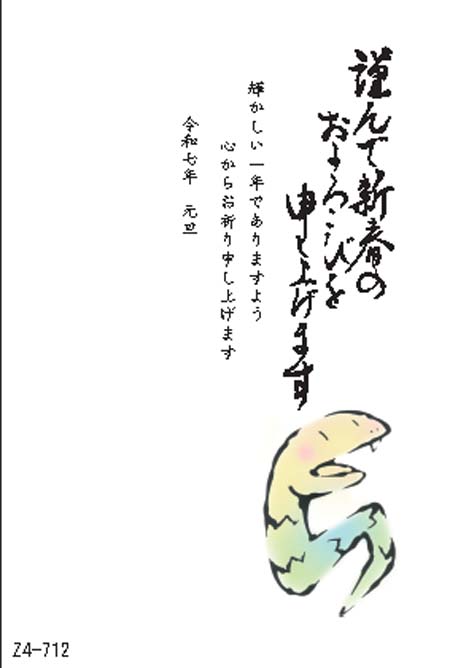 謹んで新春の
およろこびを
申し上げます
輝かしい一年でありますよう
心からお祈り申し上げます
令和七年 元旦
Z4-712